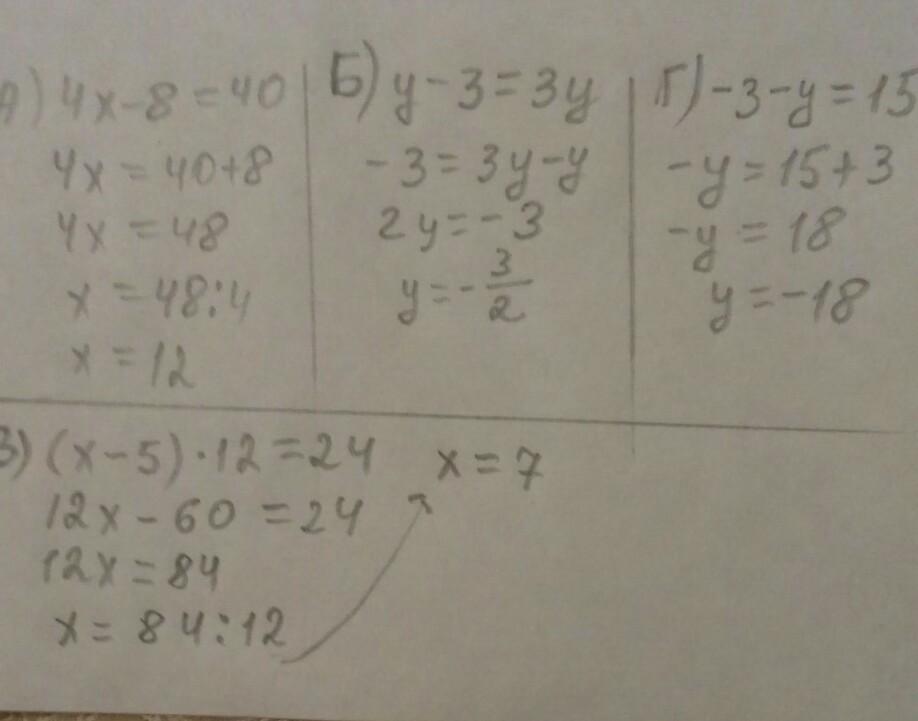 А) 4x-8=40
4x=40+8
4x=48
x=48:4
x=12
Б) y-3=3y
-3=3y-y
2y=-3
y=-3/2
Г) -3-y=15
-y=15+3
-y=18
y=-18
В) (x-5)·12=24
12x-60=24
12x=84
x=84:12
x=7